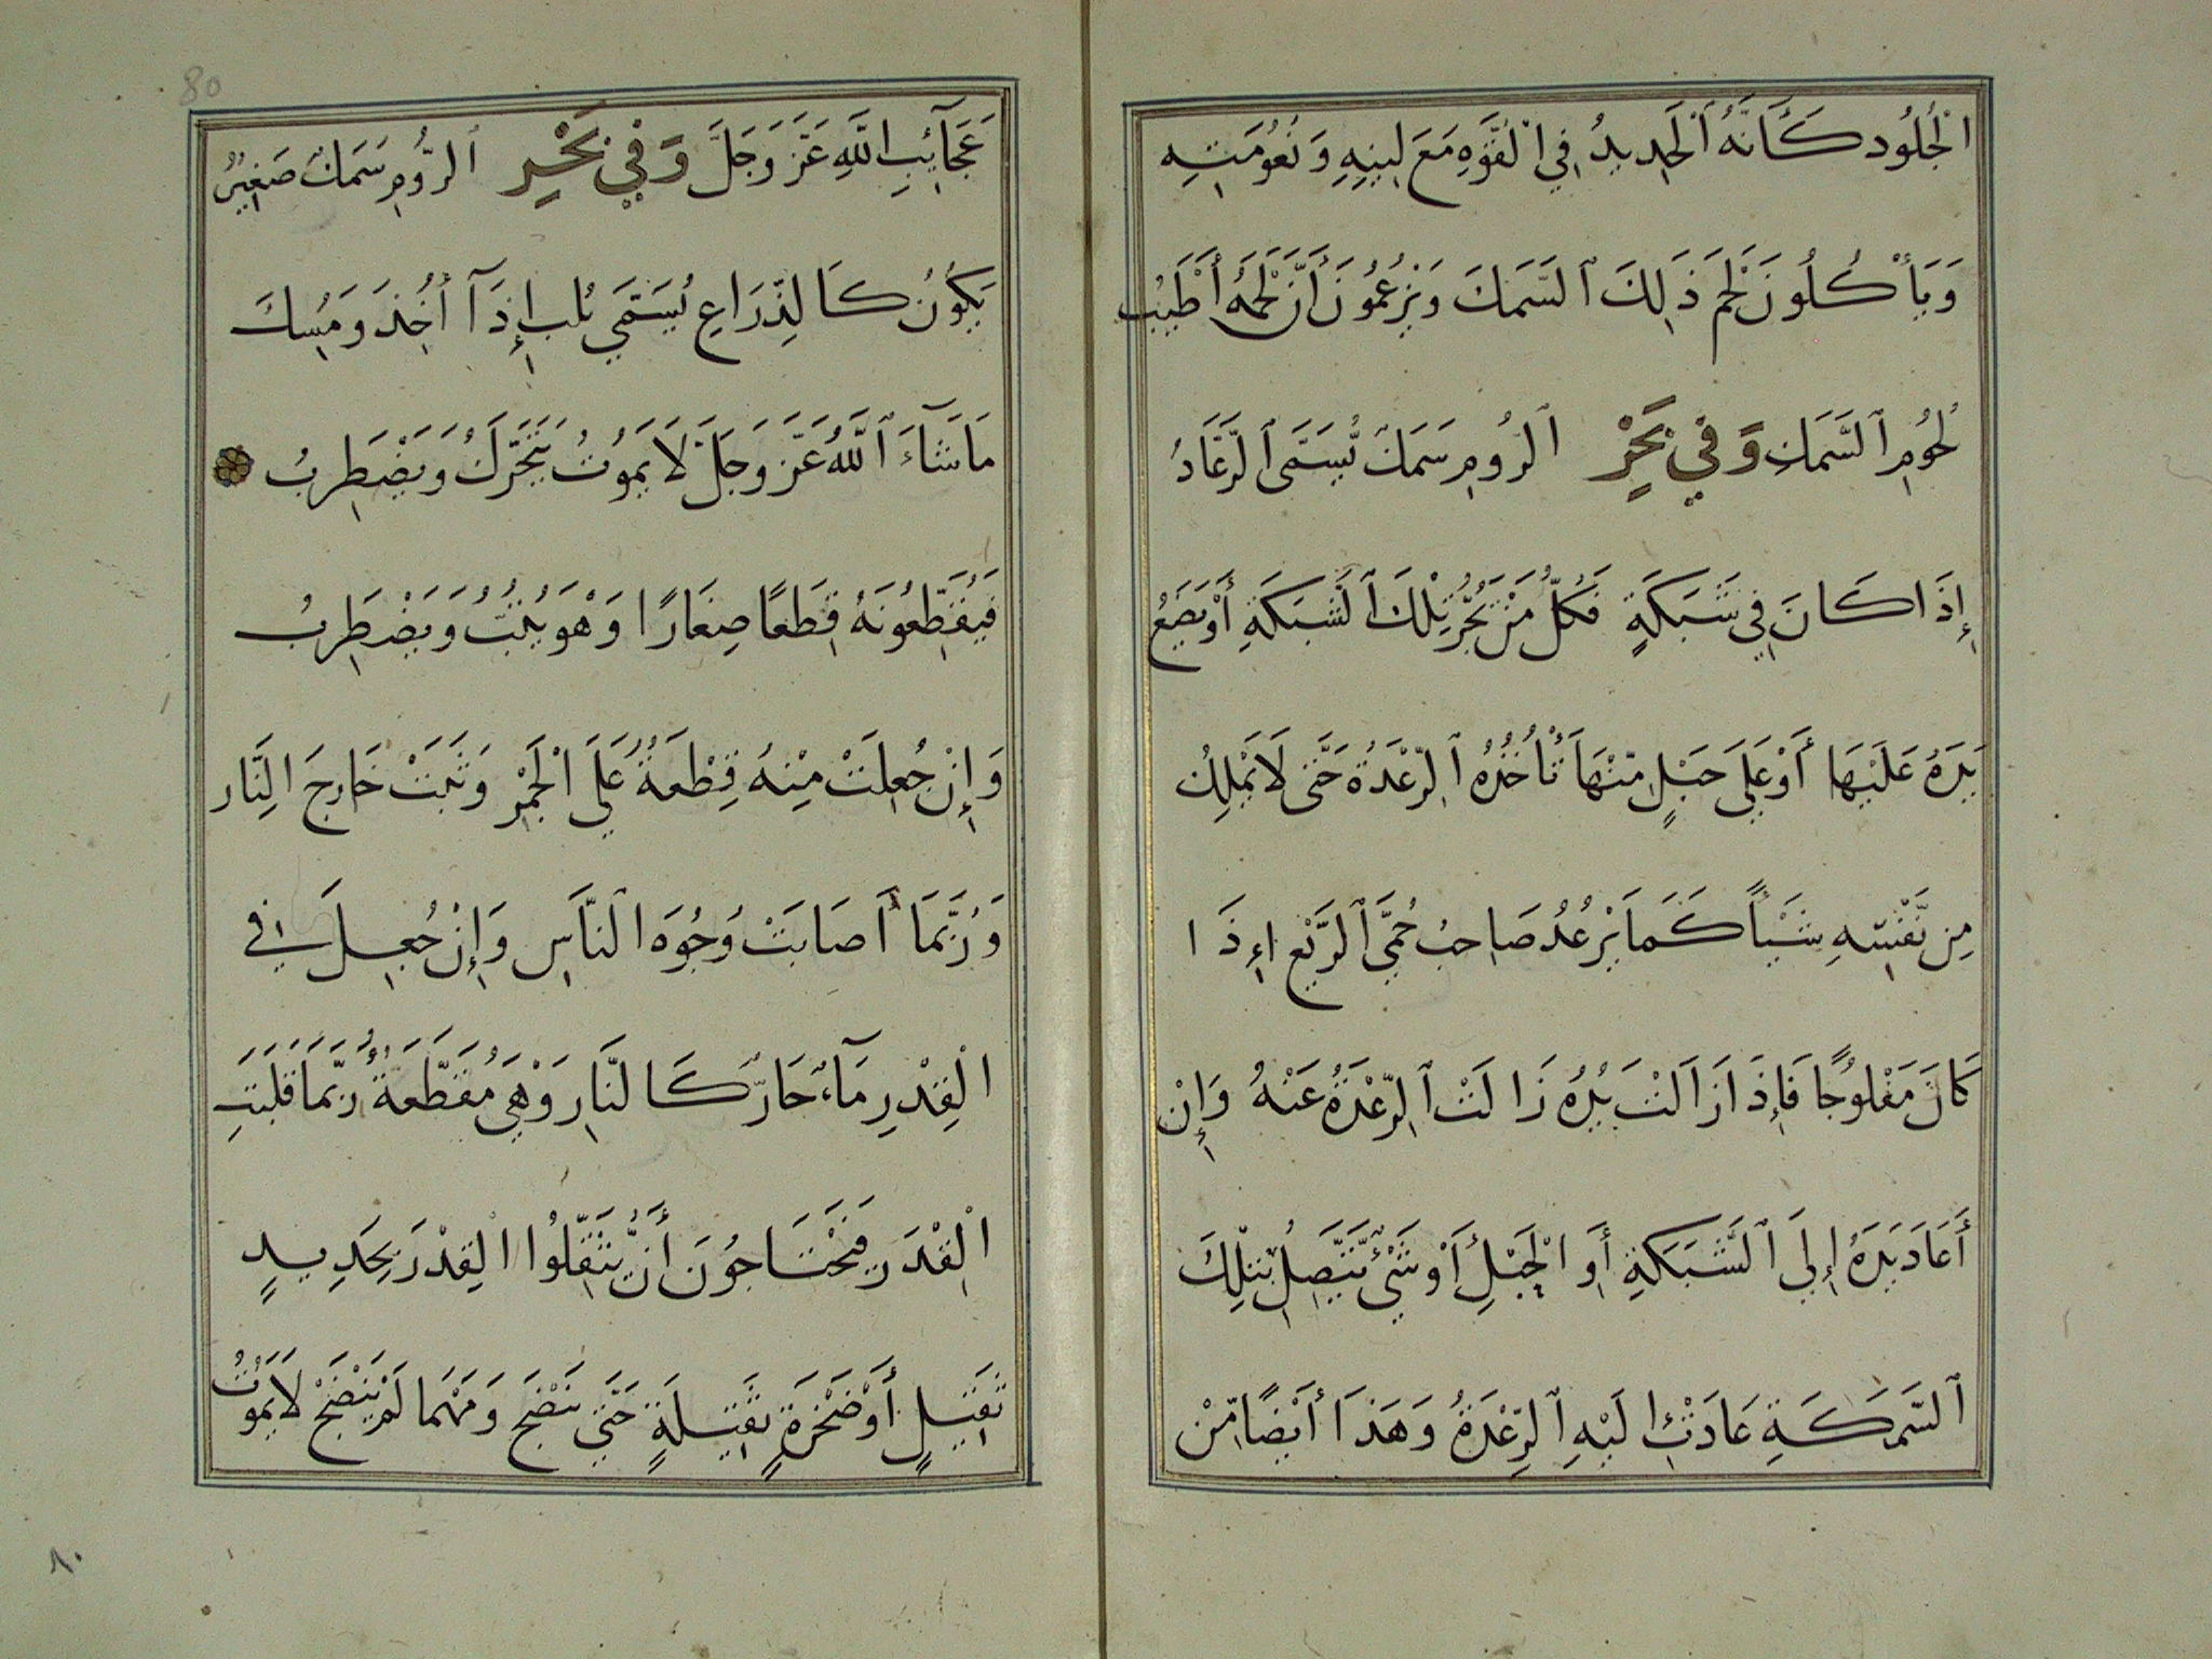 الْجُلُود كَأَنَّهُ الْحَدِيدُ فِي الْقُوَّةِ مَعَ لِينِهِ وَنُعُومَتِهِ
وَيَأْكُلُونَ لَحْمَ ذَلِكَ السَّمَكَ وَيَزْعُمُونَ أَنَّ لَحْمَهُ أَطْيَبُ
لُحُومِ السَّمَكِ وَفِي بَحْرِ الرُّومِ سَمَكٌ يُسَمَّى الرَّعَّادُ
إِذَا كَانَ فِي شَبَكَةٍ فَكُلُّ مَنْ يَجُرُّ تِلْكَ الشَّبَكَةِ أَوْ يَضَعُ
يَدَهُ عَلَيْهَا أَوْ عَلَى حَبْلٍ مِنْهَا تَأْخُذُهُ الرِّعْدَةُ حَتَّى لَا يَمْلِكُ
مِن نَّفْسِهِ شَيْأً كَمَا يَرْعُدُ صَاحِبُ حُمَّى الرِّبْعِ اِءذَا
كَانَ مَفْلُوجًا فَإِذَا زَالَتْ يَدُهُ زَالَتْ الرِّعْدَةُ عَنْهُ وَإِنْ
أَعَادَ يَدَهُ إِلَى الشَّبَكَةِ أَوِ الْحَبْلِ أَوْ شَيْءٍ يَتَّصِلُ بِتِلْكَ
السَّمَكَةِ عَادَتْ إِلَيْهِ الرِّعْدَةُ وَهَذَا أَيْضًا مِّنْ
عَجَآئِبِ اللَّهِ عَزَّ وَجَلَّ وَفِي بَحْرِ الرُّومِ سَمَكٌ صَغِيرٌ
يَكُونُ كَالذِّرَاعِ يُسَمَّى بُلب إِذَآ أُخِذَ وَمُسِكَ
مَا شَآءَ اللَّهُ عَزَّ وَجَلَّ لَا يَمُوتُ يَتَحَرَّكُ وَيَضْطَرِبُ
فَيُقَطِّعُونَهُ قِطَعًا صِغَارًا وَهْوَ يَثِبُ وَيَضْطَرِبُ
وَإِنْ جُعِلَتْ مِنْهُ قِطْعَةٌ عَلَى الْجَمْرِ وَثَبَتْ خَارِجَ النَّار
وَرُبَّمَا أَصَابَتْ وُجُوهَ النَّاسِ وَإِنْ جُعِلَ فِي
الْقِدْرِ مَآءٌ حَارٌّ كَالنَّارِ وَهْيَ مُقَطَّعَةٌ رُبَّمَا قَلَبَتِ
الْقِدْرَ فَيَحْتَاجُونَ أَنْ يُثَقِّلُوا الْقِدْرَ بِحَدِيدٍ
ثَقِيلٍ أَوْ صَخْرَةٍ ثَقِيلَةٍ حَتَّى يَنْضَجَ وَمَهْمَا لَمْ يَنْضَجْ لَا يَمُوتُ
80
٨٠